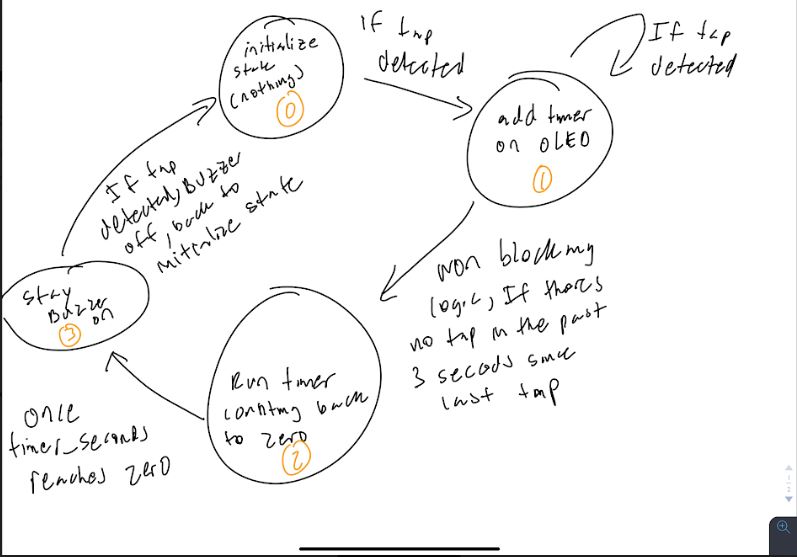 initialize
state
(nothing)
0
if tap
detected
If tap
detected
add timer
on OLED
1
non blocking
logic, If theres
no tap in the past
3 seconds since
last tap
Run timer
counting back
to zero
2
once
timer_seconds
reaches zero
stay
Buzzer
on
3
If tap
detected, Buzzer
off, back to
initialize state